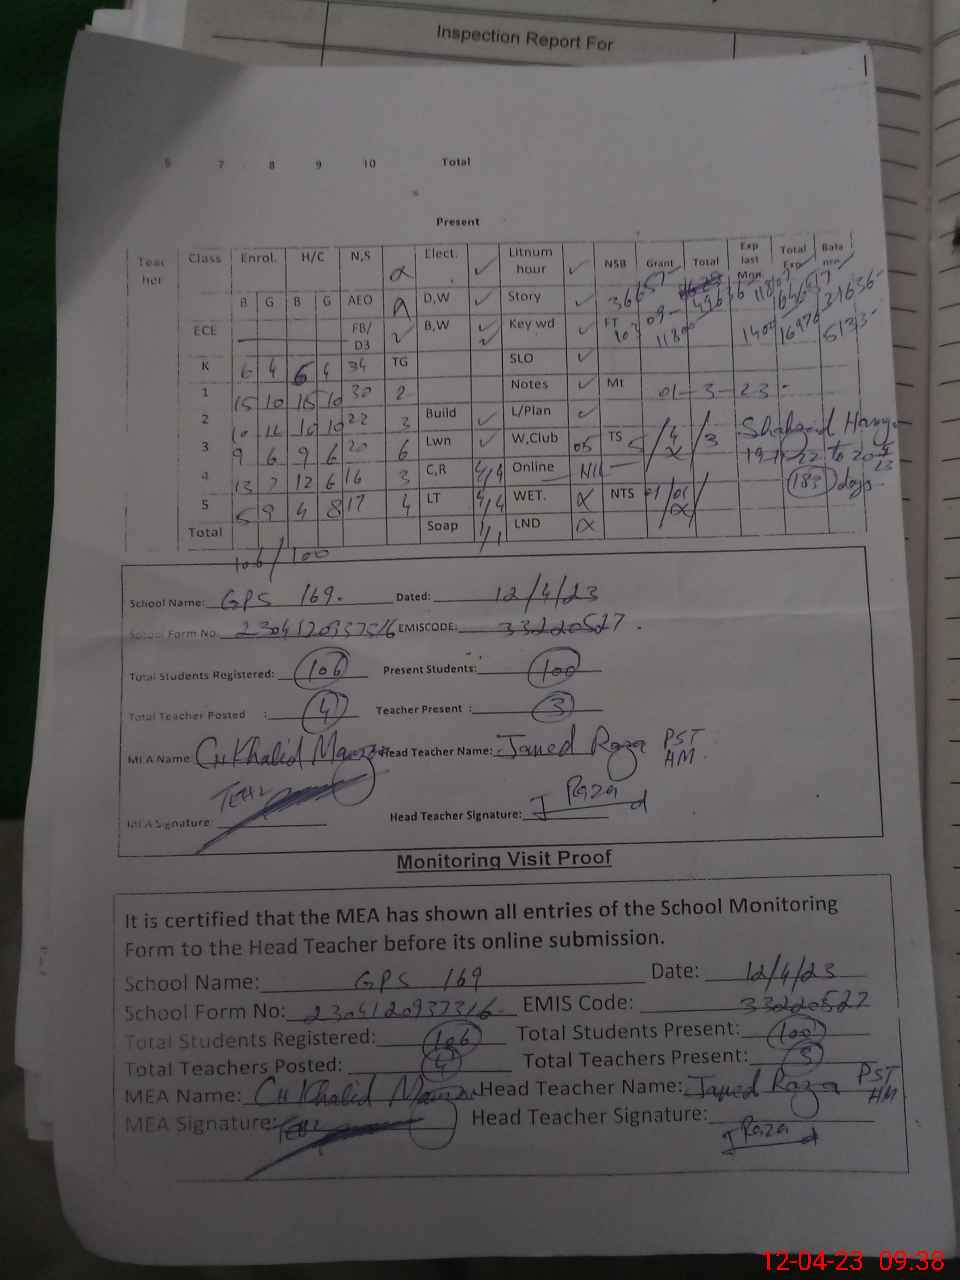 Inspection Report For
6 7 8 9 10 Total
Present
Teac her Class Enrol. H/C N,S Elect. ✓ Litnum hour ✓ NSB Grant Total Exp last Mon Total Exp Bala nce
B G B G AEO D,W ✓ Story ✓ 36657
ECE FB/ D3 ✓ B,W ✓ Key wd ✓ FT 1400 16976 5133
K 6 4 6 4 34 TG SLO ✓
1 15 10 15 10 30 2 Notes ✓ Mt 01-3-23
2 10 11 10 10 22 3 Build ✓ L/Plan ✓
3 9 6 9 6 20 6 Lwn ✓ W,Club 05 TS
4 13 7 12 6 16 3 C,R 4/4 Online NIL NTS
5 5 9 4 8 17 4 LT 4/4 WET.
Total Soap 1/1 LND
183 days
106/100
School Name: GPS 169. Dated: 12/4/23
School Form No. 2304120937316 EMISCODE: 33220527.
Total Students Registered: 106 Present Students: 100
Total Teacher Posted : 4 Teacher Present : 3
MEA Name: Ch Khalid Head Teacher Name: Javed Raza PST HM.
MEA Signature: Head Teacher Signature: J Raza
Monitoring Visit Proof
It is certified that the MEA has shown all entries of the School Monitoring
Form to the Head Teacher before its online submission.
School Name: GPS 169 Date: 12/4/23
School Form No: 2304120937316 EMIS Code: 33220527
Total Students Registered: 106 Total Students Present: 100
Total Teachers Posted: 4 Total Teachers Present: 3
MEA Name: Ch Khalid Head Teacher Name: Javed Raza PST HM
MEA Signature: Head Teacher Signature:
J Raza
12-04-23 09:38